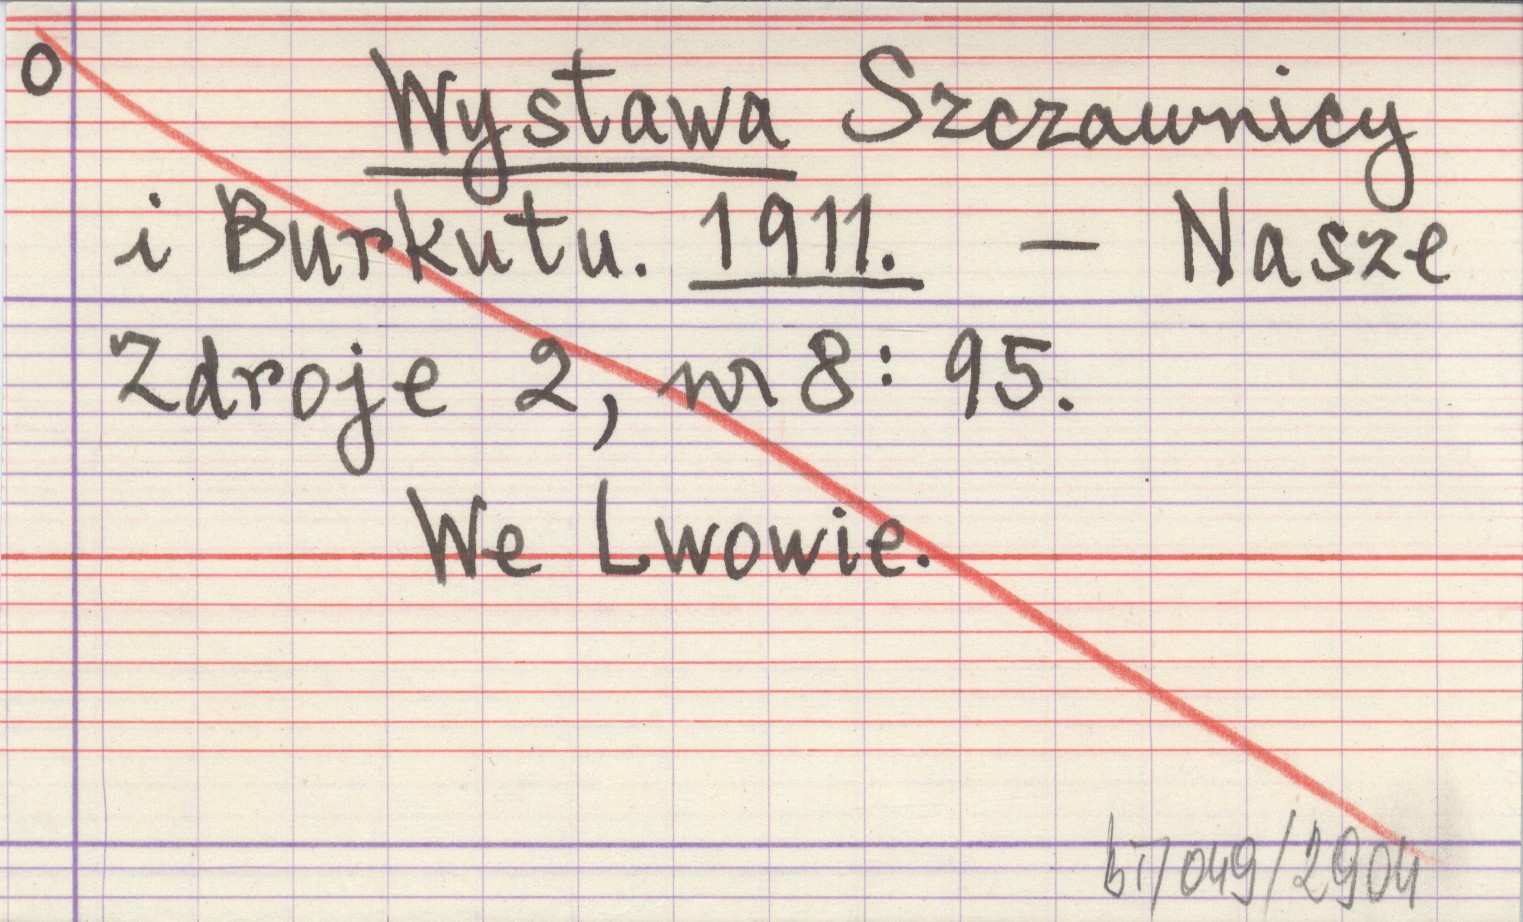 O
Wystawa Szczawnicy
i Burkutu. 1911. — Nasze
Zdroje 2, nr 8: 95.
We Lwowie.
bT/049/2904